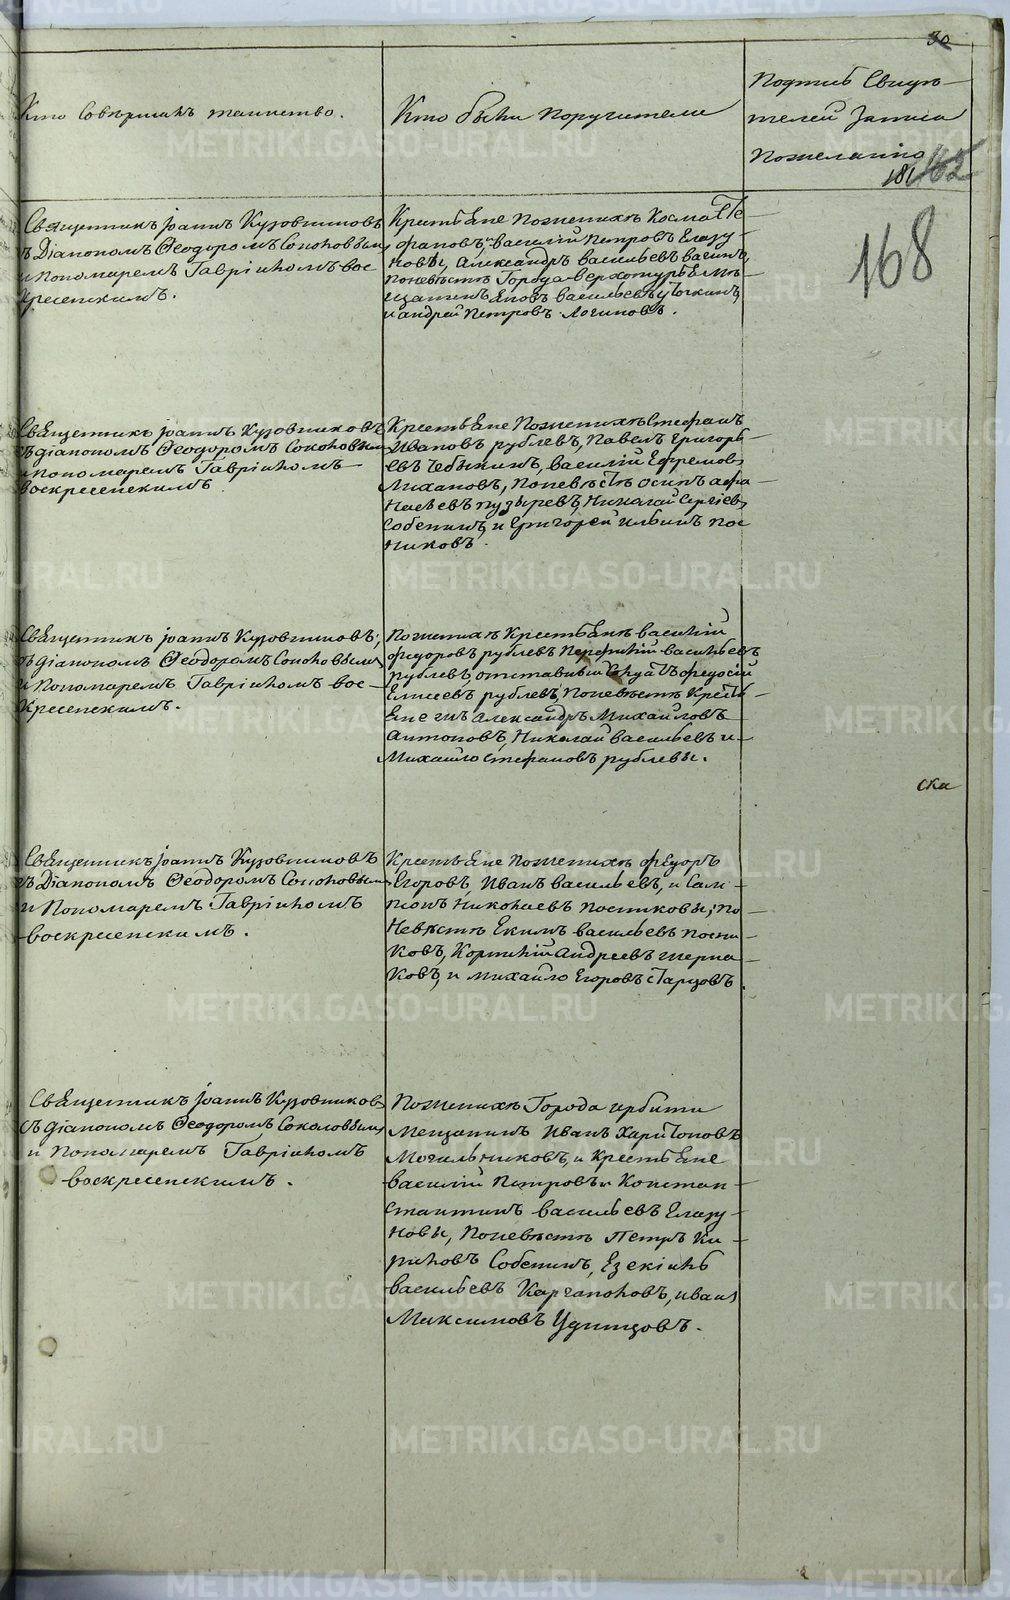 30
Кто Совершалъ таинство.
Кто были Поручители
Подпись Свидѣ-
телей Записи
Пожеланію
181
165
168
Священникъ Іоаннъ Кузовниковъ
съ Діакономъ Ѳеодоромъ Соколовымъ
и Пономаремъ Гавріиломъ вос
кресенскимъ.
Крестьяне Поженихѣ Косма Сте-
фановъ, Василій Петровъ Елагу-
новы, Александръ васильевъ
Поневѣстѣ Города верхотурья мѣ-
щанинъ васильевъ
и андрей Петровъ Логиновъ.
Священникъ Іоаннъ Кузовниковъ
съ діакономъ Ѳеодоромъ Соколовымъ
и пономаремъ Гавріиломъ
воскресенскимъ
Крестьяне Поженихѣ Стефанъ
Ивановъ рублевъ, Павелъ Григорь-
евъ Чебыкинъ, василій Ефремовъ
Михаловъ, Поневѣстѣ осипъ афа-
насьевъ пузыревъ, Николай Сергіевъ
Собенинъ, и Григорей Ильинъ Пос
никовъ.
Священникъ Іоаннъ Кузовниковъ,
съ діакономъ Ѳеодоромъ Соколовымъ
и Пономаремъ Гавріиломъ вос-
кресенскимъ.
Поженихѣ Крестьяне василій
федоровъ рублевъ Перфилій васильевъ
рублевъ, отставный федосій
Елисеевъ рублевъ, Поневѣстѣ Кресть-
яне александръ Михайловъ
антоновъ, Николай васильевъ и
Михайло стефановъ рублевы.
ска
Священникъ Іоаннъ Кузовниковъ
съ Діакономъ Ѳеодоромъ Соколовымъ
и Пономаремъ Гавріиломъ
воскресенскимъ.
Крестьяне Поженихѣ Федоръ
Егоровъ, Иванъ васильевъ, и Сам-
псонъ Николаевъ Посниковы, По-
Невѣстѣ Екимъ васильевъ Посни
ковъ, Корнилій Андреевъ
ковъ, и михайло Егоровъ старцовъ.
Священникъ Іоаннъ Кузовниковъ
съ діакономъ Ѳеодоромъ Соколовымъ
и Пономаремъ Гавріиломъ
воскресенскимъ.
Поженихѣ Города ирбити
мещанинъ Иванъ Харитоновъ
Могильниковъ, и Крестьяне
василій Петровъ и Констан-
стантинъ васильевъ Елагу-
новы, Поневѣстѣ Петръ Ки-
риловъ Собенинъ, Езекіиль
васильевъ Каргаполовъ, иванъ
Максимовъ Удинцовъ.
METRIKI.GASO-URAL.RU